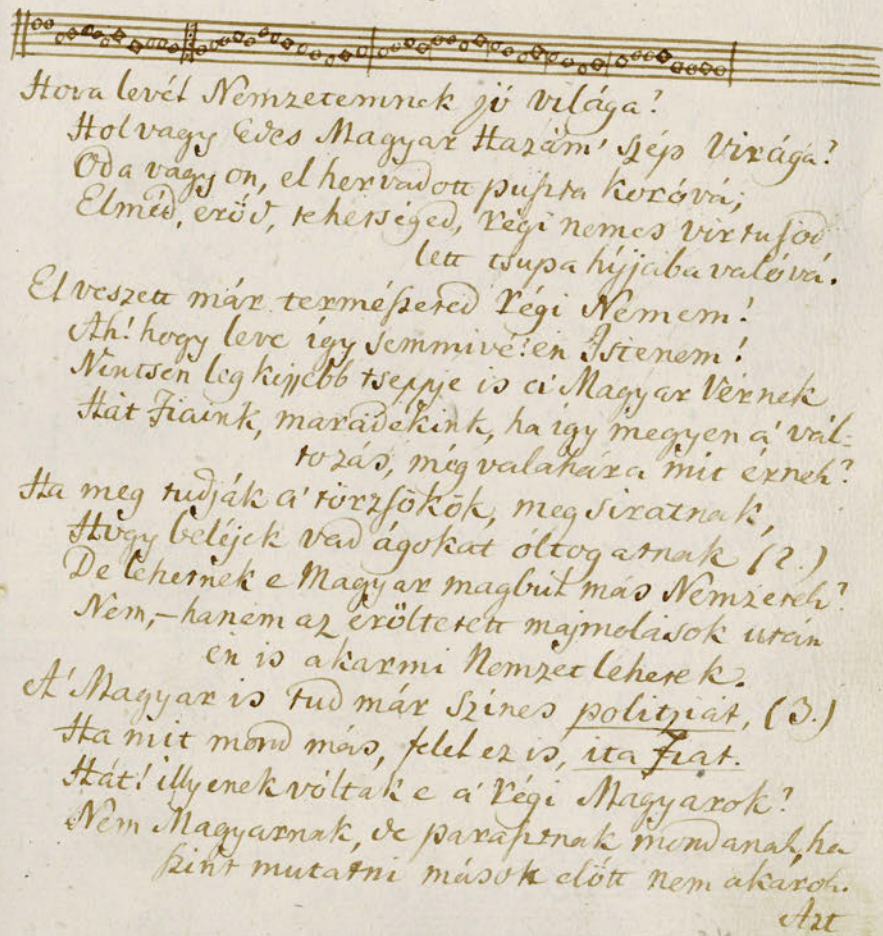 Hova levél Nemzetemnek jó világa?
Hol vagy Edes Magyar Hazám' szép Virága?
Oda vagyon, el hervadott puszta koróvá;
Elméd, erőd, tehetséged, régi nemes virtusod
lett tsupa híjjába valóvá.
El veszett már természeted Régi Nemem!
Ah! hogy leve így semmivé! én Istenem!
Nintsen leg kissebb tseppje is a' Magyar Vérnek
Hát Fiaink, maradékink, ha így megyen a' vál-
tozás, még valahára mit érnek?
Ha meg tudják a' törzsökök, meg siratnak,
Hogy beléjek vad ágokat óltogatnak (2.)
De lehetnek e Magyar magbúl más Nemzetek?
Nem, – hanem az erőltetett majmolások után
én is akarmi Nemzet lehetek.
A' Magyar is tud már színes politziát, (3.)
Ha mit mond más, felel ez is, ita Fiat.
Hát! illyenek vóltak e a' Régi Magyarok?
Nem Magyarnak, de parasztnak mondanak, ha
színt mutatni mások előtt nem akarok.
Azt